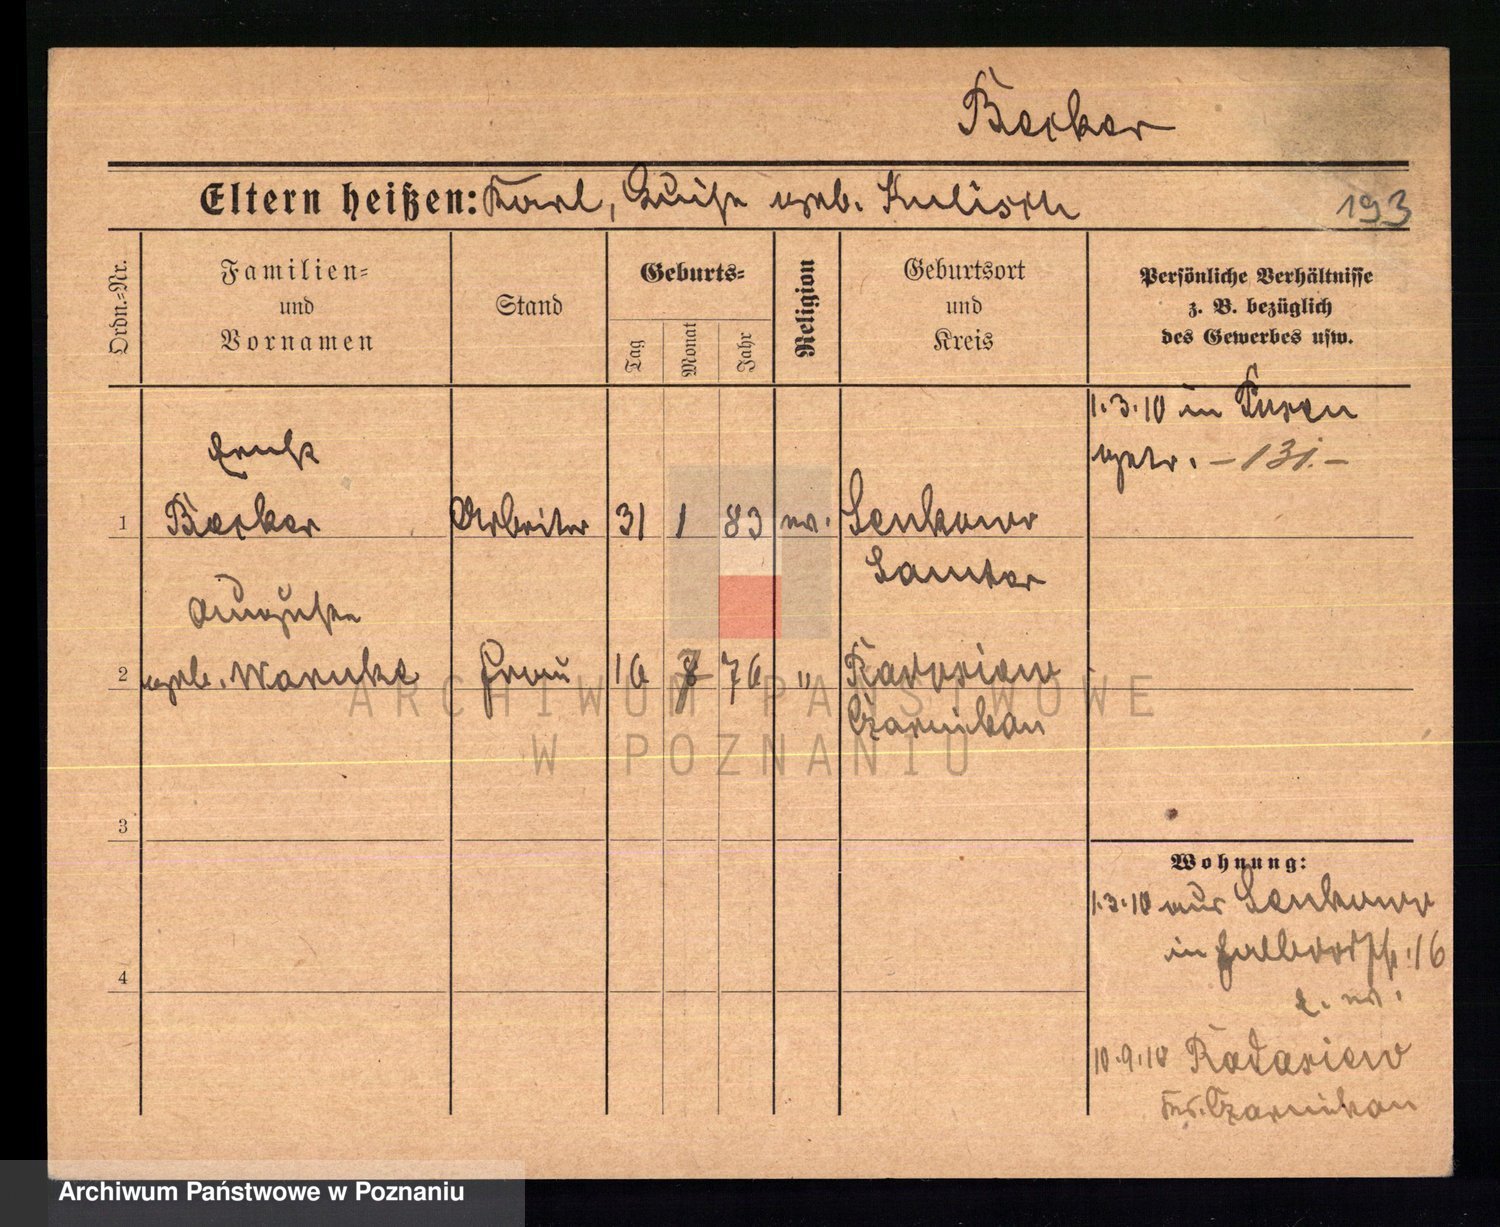 Becker
Eltern heißen: Karl, Luise geb. Kulisch
193
Ordn.=Nr.
Familien=
und
Vornamen
Stand
Geburts=
Tag
Monat
Jahr
Religion
Geburtsort
und
Kreis
Persönliche Verhältnisse
z. B. bezüglich
des Gewerbes usw.
1.3.10 in Posen
getr. - 131. -
Ernst
1 Becker Arbeiter 31 1 83 ev. Lenkowo
Samter
Auguste
2 geb. Warnke Frau 16 76 " Radosiew
Czarnikau
3
4
Wohnung:
1.3.10 aus Lenkowo
in 16
10.9.10 Radosiew
Kr. Czarnikau
ARCHIWUM PAŃSTWOWE
W POZNANIU
Archiwum Państwowe w Poznaniu